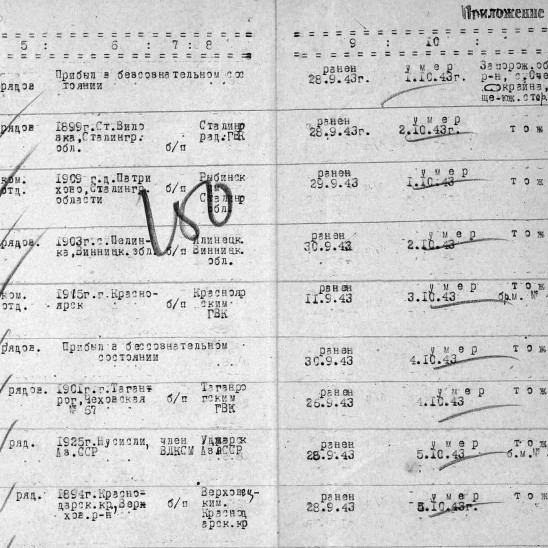 Приложение
5 : 6 : 7 : 8 9 : 10 :
рядов. Прибыл в бессознательном сос
тоянии
ранен умер
28.9.43г. 1.10.43г.
Запорож.об
р-н,
крайна,
рядов. 1899г.Ст.Вило Сталинг
вка,Сталингр. б/п рад.ГВК
обл.
ранен умер
28.9.43г. 2.10.43г. то ж
ком. 1909 г.д.Патри Рыбинск
отд. хово,Сталингр. б/п
области Сталинг
обл.
ранен умер
29.9.43 1.10.43 то ж
рядов. 1903г.с.Пелин- Илинецк.
ка,Винницк.обл. б/п Винницк.
обл.
ранен умер
30.9.43 2.10.43 то ж
ком. 1915г.г.Красно- Краснояр
отд. ярск б/п ским
ГВК
ранен умер
11.9.43 3.10.43 то ж
рядов. Прибыл в бессознательном
состоянии
ранен умер
30.9.43 4.10.43 то ж
рядов. 1901г.г.Таган- Таганро
рог,Чеховская б/п гским
№ 67 ГВК
ранен умер
26.9.43 4.10.43 то ж
ряд. 1925г.Нусисли, член
Ав.ССР ВЛКСМ Ав.ССР
ранен умер
28.9.43 5.10.43 то ж
б.м.№
ряд. 1894г.Красно-
дарск.кр,Верх б/п ким.
нов.р-н Краснод
арск.кр
ранен умер
28.9.43 5.10.43г. то ж